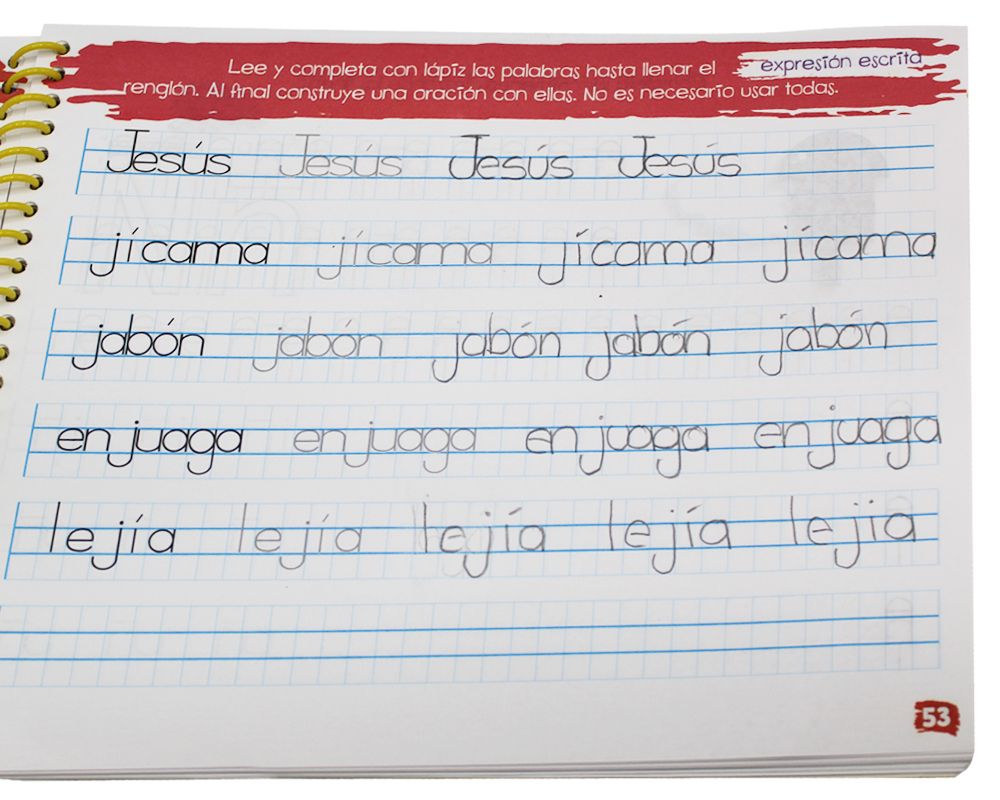 Lee y completa con lápiz las palabras hasta llenar el
expresión escrita
renglón. Al final construye una oración con ellas. No es necesario usar todas.
Jesús Jesús Jesús Jesús
jícama jícama jícama jícama
jabón jabón jabón jabón jabón
enjuaga enjuaga enjuaga enjuaga
lejía lejía lejía lejía lejia
53